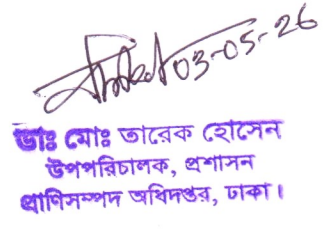 03-05-26
ডাঃ মোঃ তারেক হোসেন
উপপরিচালক, প্রশাসন
প্রাণিসম্পদ অধিদপ্তর, ঢাকা।